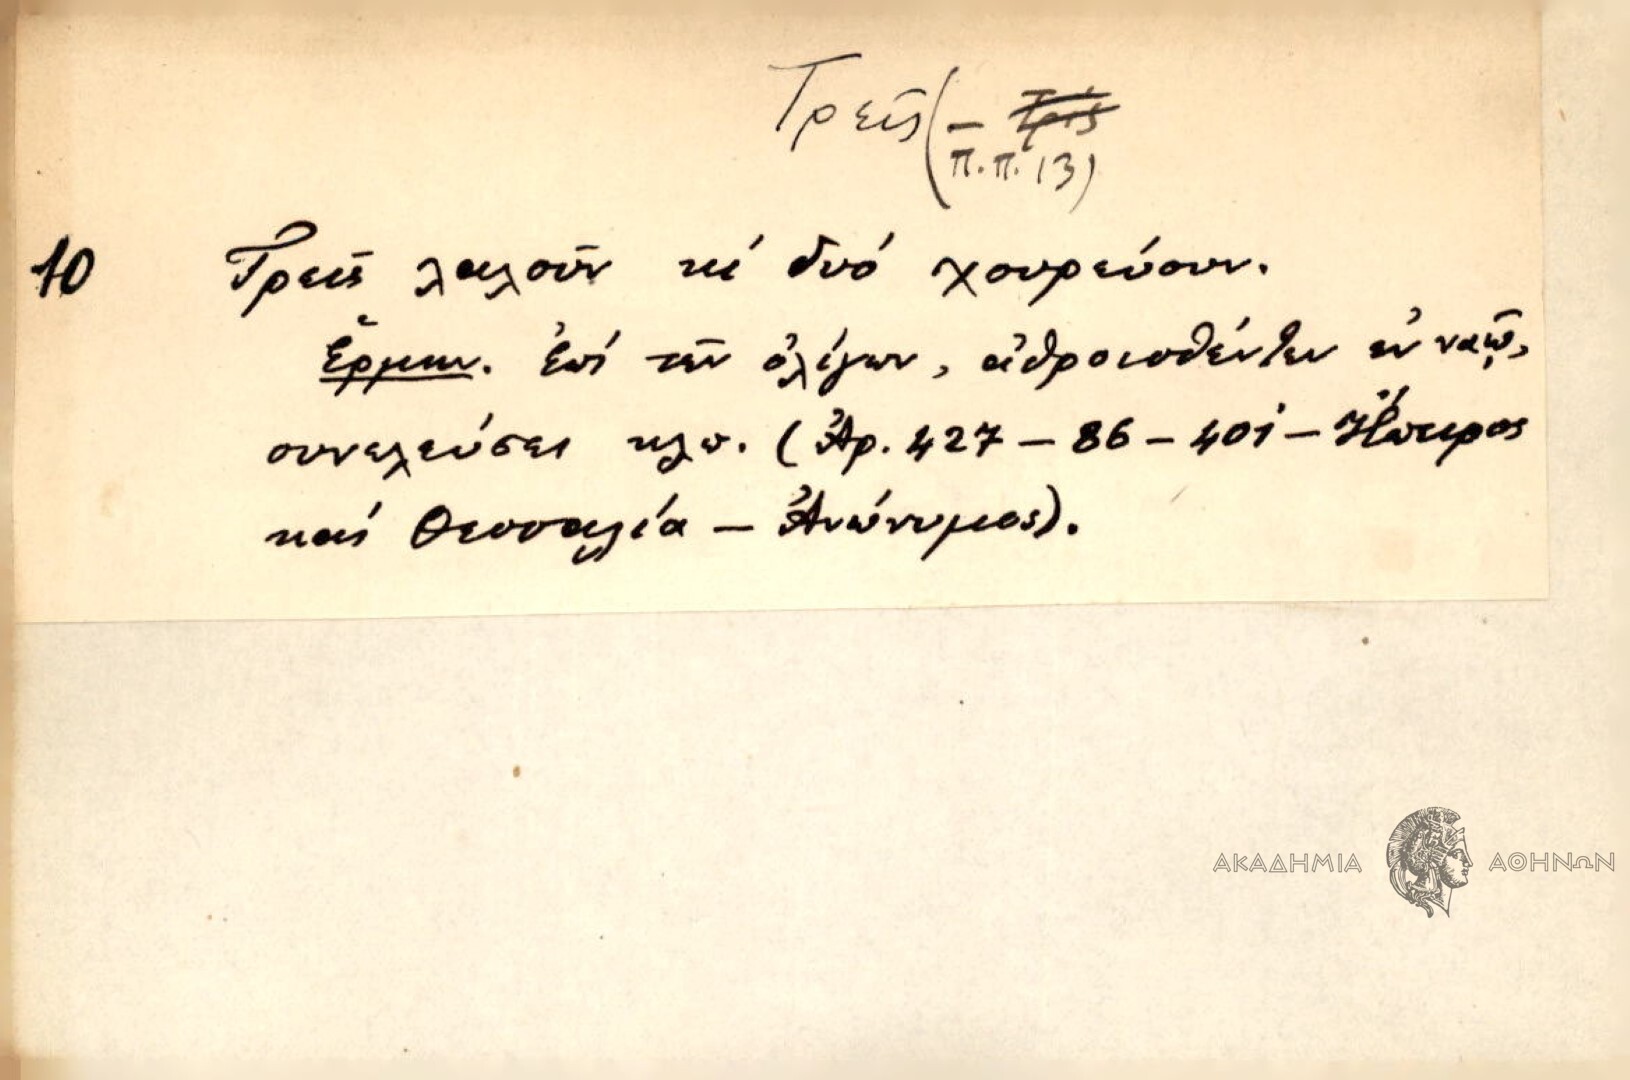 Τρεῖς (– Τρίς
π.π. 13)
10 Τρεῖς λαλοῦν κί δυό χουρεύουν.
Ἑρμην. Ἐπί τῶν ὀλίγων, ἀθροισθέντων ἐν ναῷ,
συνελεύσει κλπ. (Ἀρ. 427 – 86 – 401 – Ἤπειρος
καί Θεσσαλία – Ἀνώνυμος).
ΑΚΑΔΗΜΙΑ ΑΘΗΝΩΝ